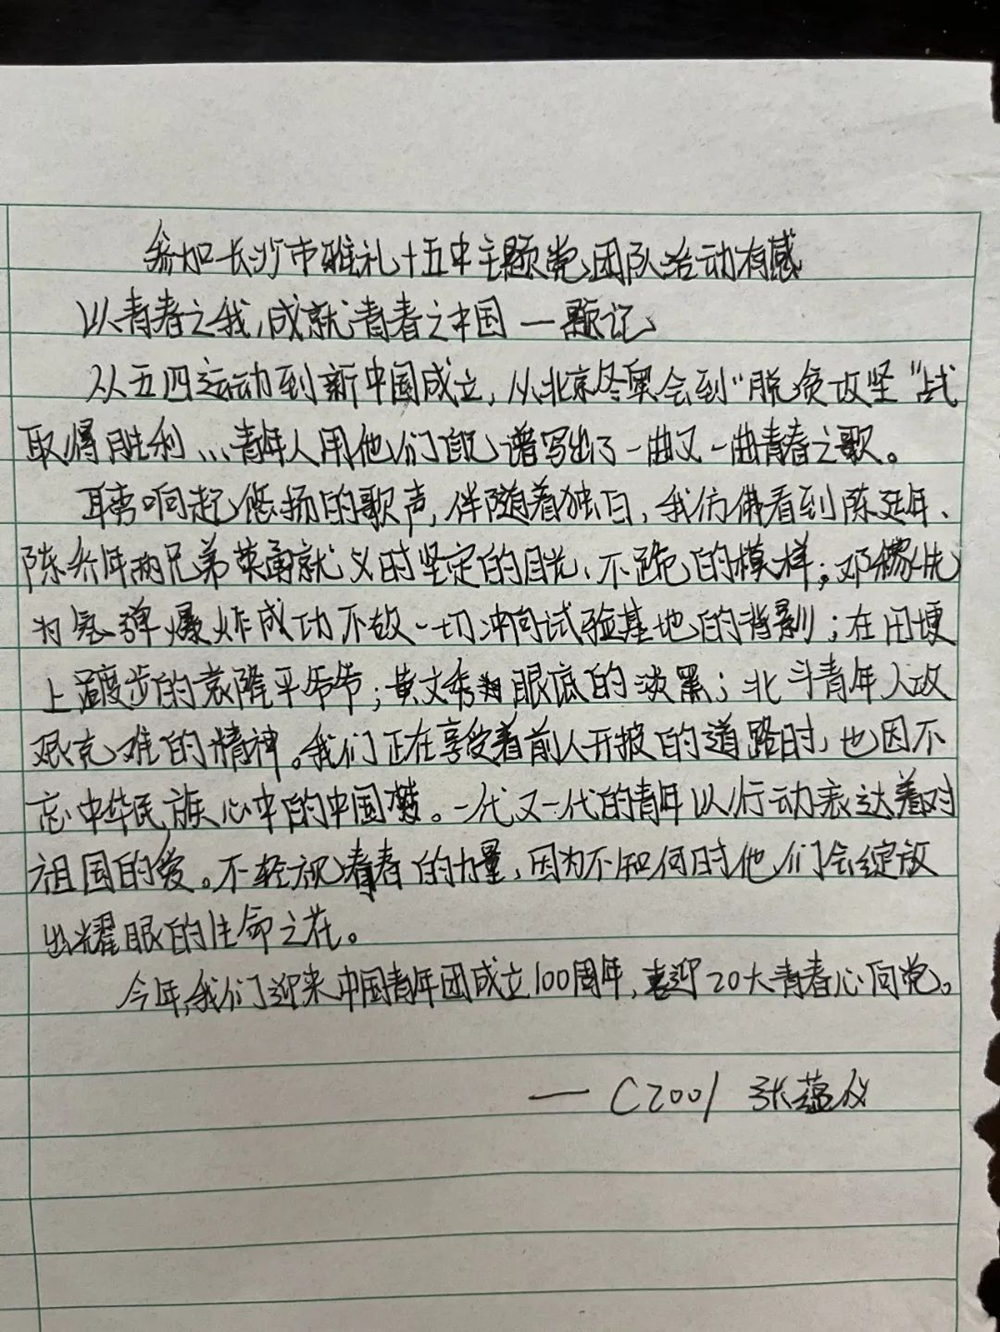 参加长沙市雅礼十五中主题党团队活动有感
以青春之我,成就青春之中国 一题记
从五四运动到新中国成立,从北京冬奥会到“脱贫攻坚”战
取得胜利...青年人用他们自己谱写出了一曲又一曲青春之歌。
耳旁响起悠扬的歌声,伴随着独白,我仿佛看到陈延年、
陈乔年两兄弟英勇就义时坚定的目光、不跪的模样;邓稼先
为氢弹爆炸成功不故一切冲向试验基地的背影;在田埂
上踱步的袁隆平爷爷;黄文秀眼底的淡黑;北斗青年人攻
艰克难的精神。我们正在享受着前人开披的道路时,也因不
忘中华民族心中的中国梦。一代又一代的青年以行动表达着对
祖国的爱。不轻视青春的力量,因为不知何时他们会绽放
出耀眼的生命之花。
今年,我们迎来中国青年团成立100周年,喜迎20大青春心向党。
— C2001 张蕴仪